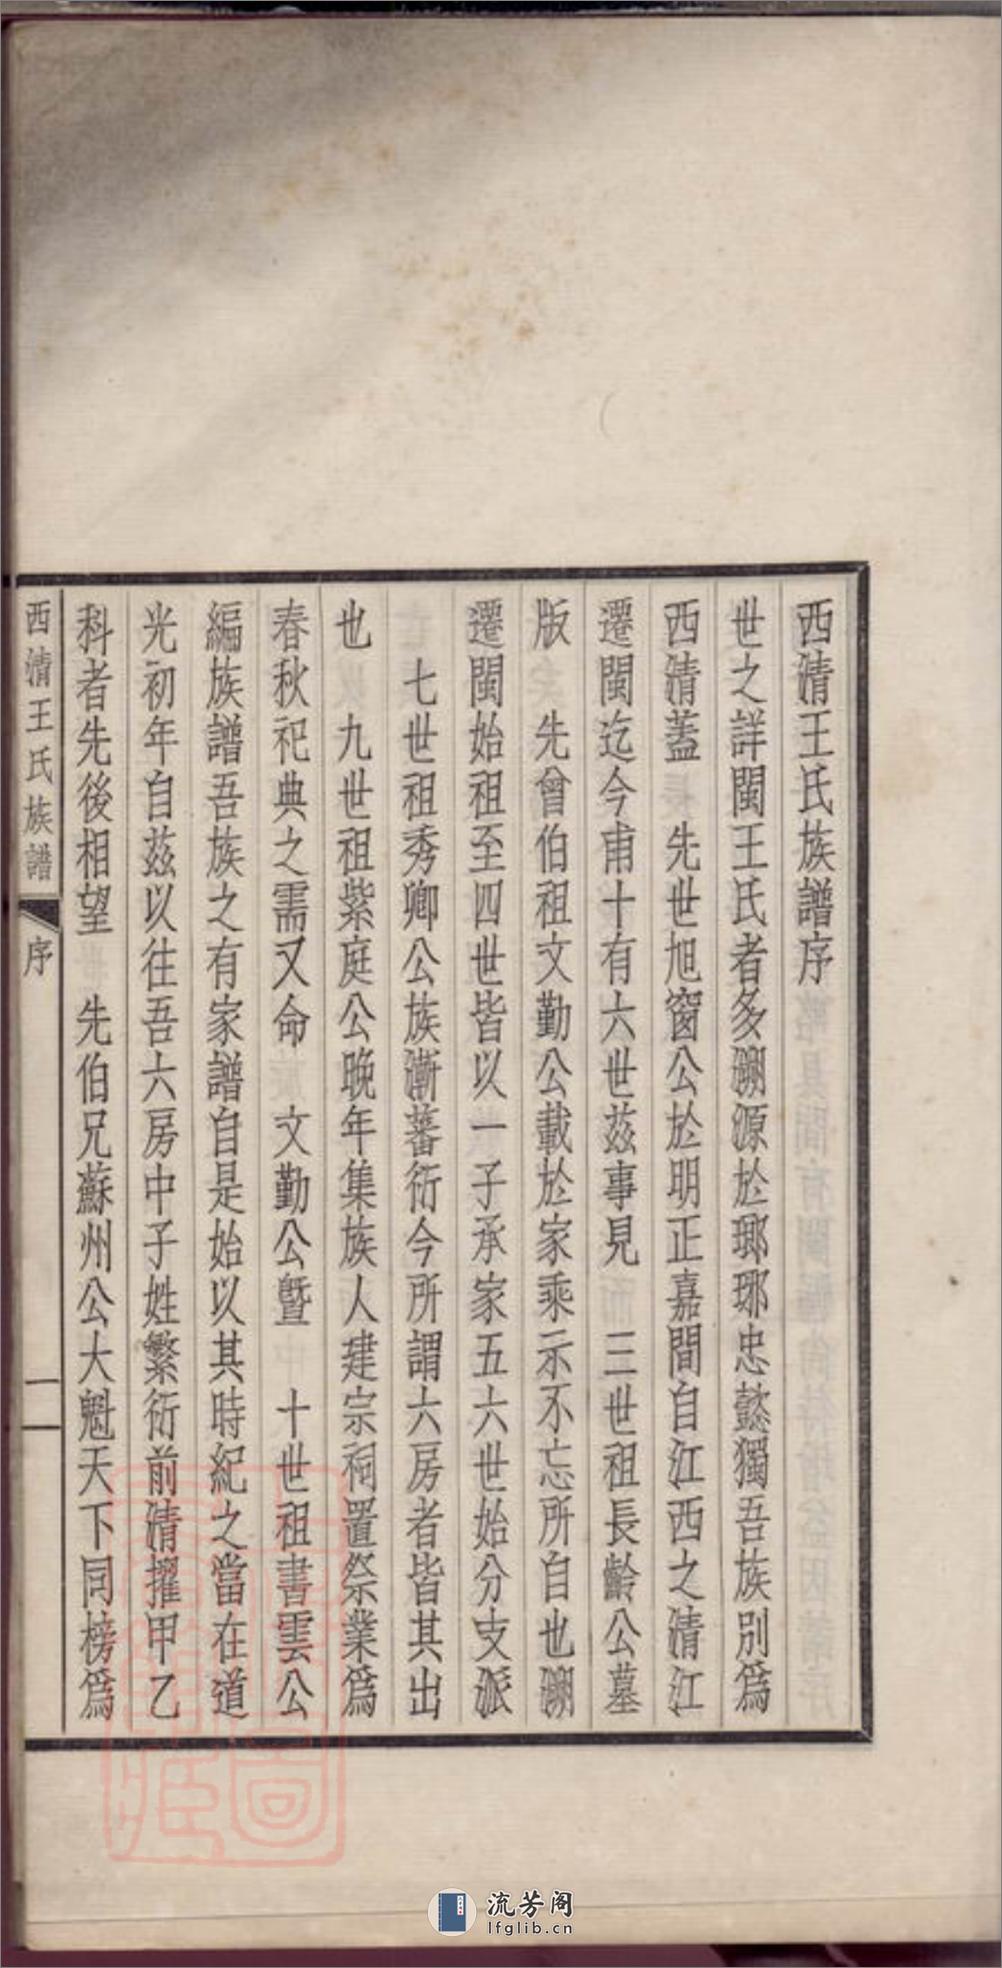 西清王氏族譜序
世之詳閩王氏者多溯源於瑯琊忠懿獨吾族別爲
西清蓋　先世旭窗公於明正嘉間自江西之清江
遷閩迄今甫十有六世茲事見　三世祖長齡公墓
版　先曾伯祖文勤公載於家乘示不忘所自也溯
遷閩始祖至四世皆以一子承家五六世始分支派
　七世祖秀卿公族漸蕃衍今所謂六房者皆其出
也　九世祖紫庭公晚年集族人建宗祠置祭業爲
春秋祀典之需又命　文勤公曁　十世祖書雲公
編族譜吾族之有家譜自是始以其時紀之當在道
光初年自茲以往吾六房中子姓繁衍前清擢甲乙
科者先後相望　先伯兄蘇州公大魁天下同榜爲
西清王氏族譜　序　一
流芳阁
lfglib.cn